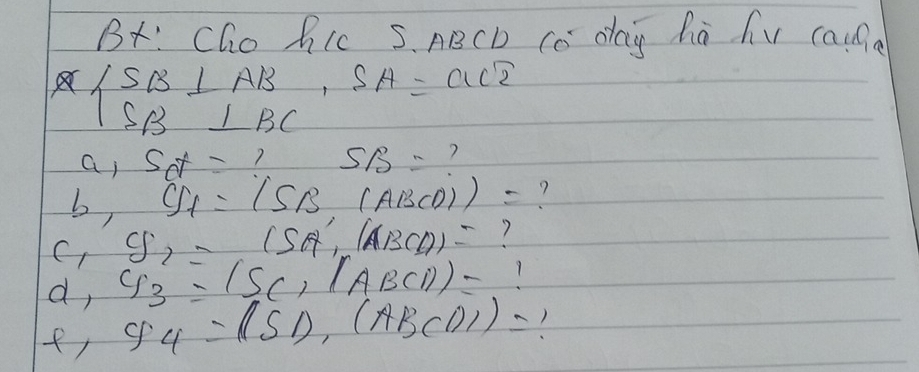 Bt: Cho h/c S.ABCD có đáy là hv cạnh a
{ SB ⊥ AB , SA = a√2
SB ⊥ BC
a, Sđ = ? SB = ?
b, φ1 = (SB, (ABCD)) = ?
c, φ2 = (SA, (ABCD) = ?
d, φ3 = (SC, (ABCD) = ?
e, φ4 = (SD, (ABCD)) = ?